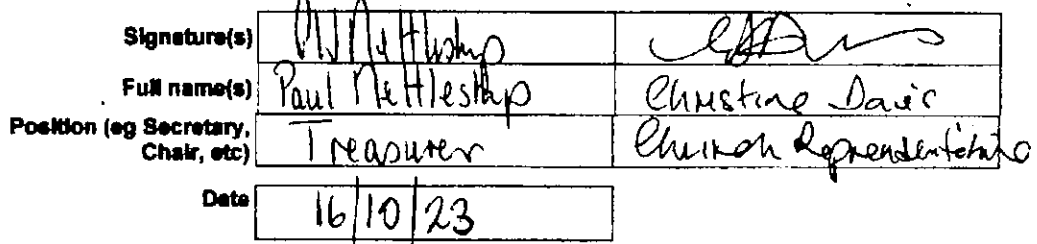 Signature(s) PJ Nettleship
Full name(s) Paul Nettleship Christine Davis
Position (eg Secretary, Chair, etc) Treasurer Church Representative
Date 16/10/23